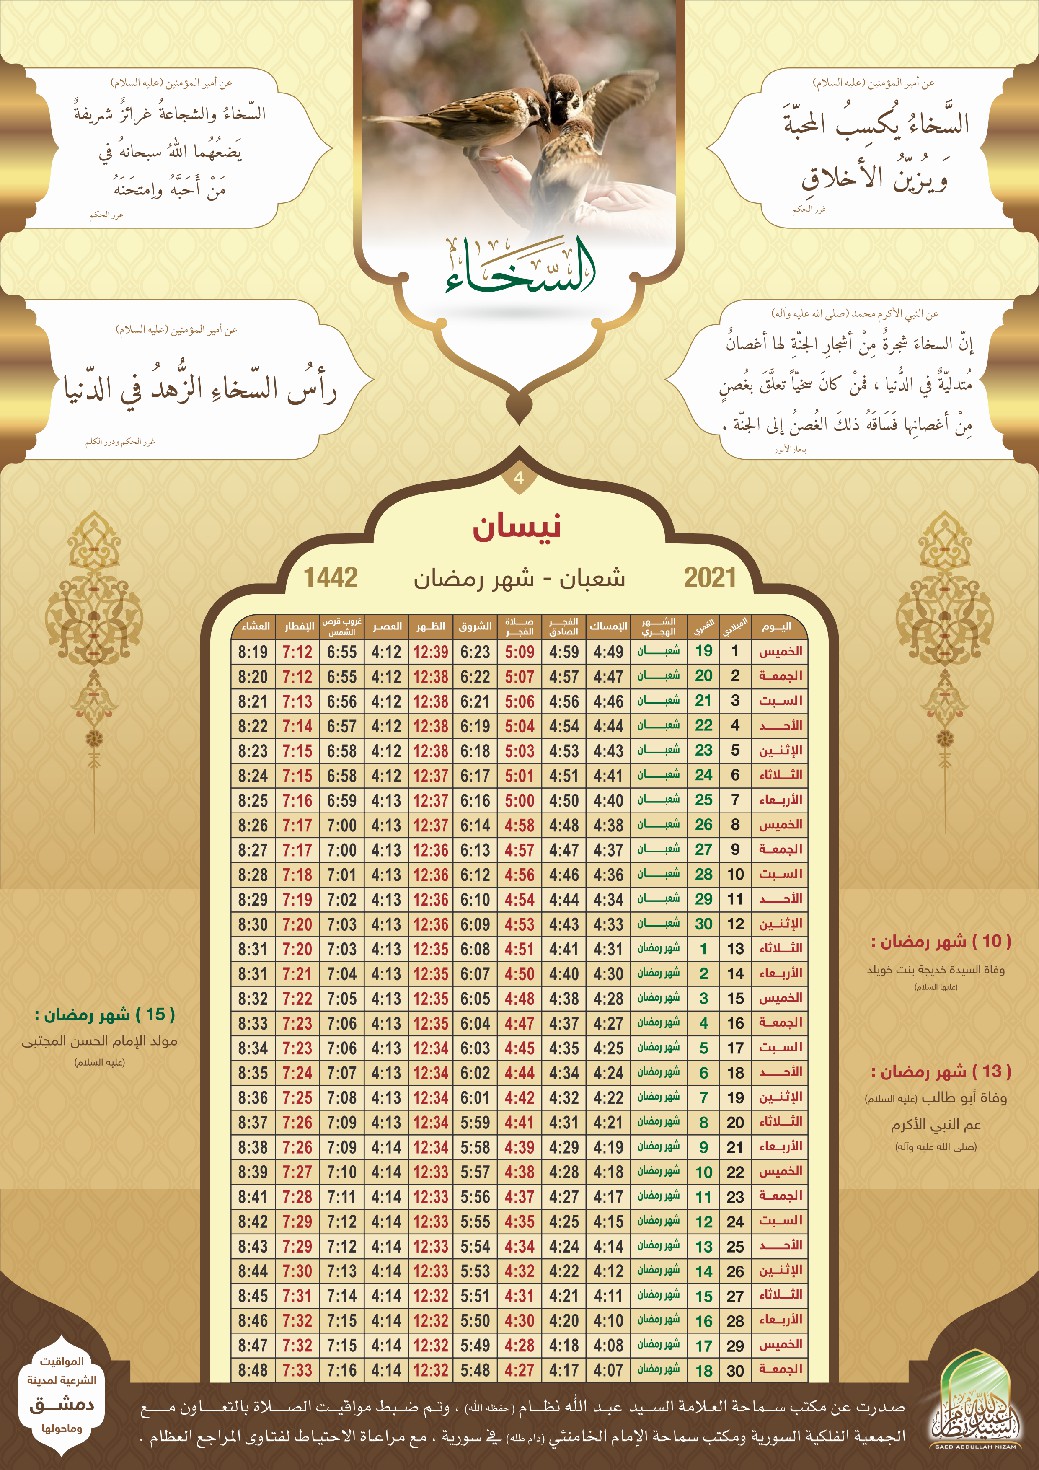 عن أمير المؤمنين (عليه السلام)
السَّخاءُ يُكسِبُ المحبّةَ
وَيُزيّنُ الأخلاقِ
غرر الحكم
عن أمير المؤمنين (عليه السلام)
السّخاءُ والشجاعةُ غرائزٌ شريفةٌ
يَضعُهُما اللهُ سبحانهُ في
مَنْ أَحَبَّهُ وامتحَنَهُ
غرر الحكم
السَّخَاءُ
عن النبي الأكرم محمد (صلى الله عليه وآله)
إنّ السخاءَ شجرةٌ مِنْ أشجارِ الجنّةِ لها أغصانٌ
مُتدليّةٌ في الدُّنيا ، فَمْنْ كانَ سخيّاً تعلَّقَ بغُصنٍ
مِنْ أغصانِها فَسَاقَهُ ذلكَ الغُصنُ إلى الجنّة .
بحار الأنوار
عن أمير المؤمنين (عليه السلام)
رأسُ السّخاءِ الزُّهدُ في الدّنيا
غرر الحكم ودرر الكلم
4
نيسان
2021 شعبان - شهر رمضان 1442
اليوم الميلادي القمري الشـهـر الهجري الإمساك الفجـر الصادق صـلاة الفجر الشروق الظـهر العصر غروب قرص الشمس الإفطار العشاء
الخميس 1 19 شعبـــان 4:49 4:59 5:09 6:23 12:39 4:12 6:55 7:12 8:19
الجمعـة 2 20 شعبـــان 4:47 4:57 5:07 6:22 12:38 4:12 6:55 7:12 8:20
السـبت 3 21 شعبـــان 4:46 4:56 5:06 6:21 12:38 4:12 6:56 7:13 8:21
الأحـــد 4 22 شعبـــان 4:44 4:54 5:04 6:19 12:38 4:12 6:57 7:14 8:22
الإثنـين 5 23 شعبـــان 4:43 4:53 5:03 6:18 12:38 4:12 6:58 7:15 8:23
الثـلاثاء 6 24 شعبـــان 4:41 4:51 5:01 6:17 12:37 4:12 6:58 7:15 8:24
الأربـعاء 7 25 شعبـــان 4:40 4:50 5:00 6:16 12:37 4:13 6:59 7:16 8:25
الخميس 8 26 شعبـــان 4:38 4:48 4:58 6:14 12:37 4:13 7:00 7:17 8:26
الجمعـة 9 27 شعبـــان 4:37 4:47 4:57 6:13 12:36 4:13 7:00 7:17 8:27
السـبت 10 28 شعبـــان 4:36 4:46 4:56 6:12 12:36 4:13 7:01 7:18 8:28
الأحـــد 11 29 شعبـــان 4:34 4:44 4:54 6:10 12:36 4:13 7:02 7:19 8:29
الإثنـين 12 30 شعبـــان 4:33 4:43 4:53 6:09 12:36 4:13 7:03 7:20 8:30
الثـلاثاء 13 1 شهر رمضان 4:31 4:41 4:51 6:08 12:35 4:13 7:03 7:20 8:31
الأربـعاء 14 2 شهر رمضان 4:30 4:40 4:50 6:07 12:35 4:13 7:04 7:21 8:31
الخميس 15 3 شهر رمضان 4:28 4:38 4:48 6:05 12:35 4:13 7:05 7:22 8:32
الجمعـة 16 4 شهر رمضان 4:27 4:37 4:47 6:04 12:35 4:13 7:06 7:23 8:33
السـبت 17 5 شهر رمضان 4:25 4:35 4:45 6:03 12:34 4:13 7:06 7:23 8:34
الأحـــد 18 6 شهر رمضان 4:24 4:34 4:44 6:02 12:34 4:13 7:07 7:24 8:35
الإثنـين 19 7 شهر رمضان 4:22 4:32 4:42 6:01 12:34 4:13 7:08 7:25 8:36
الثـلاثاء 20 8 شهر رمضان 4:21 4:31 4:41 5:59 12:34 4:13 7:09 7:26 8:37
الأربـعاء 21 9 شهر رمضان 4:19 4:29 4:39 5:58 12:34 4:14 7:09 7:26 8:38
الخميس 22 10 شهر رمضان 4:18 4:28 4:38 5:57 12:33 4:14 7:10 7:27 8:39
الجمعـة 23 11 شهر رمضان 4:17 4:27 4:37 5:56 12:33 4:14 7:11 7:28 8:41
السـبت 24 12 شهر رمضان 4:15 4:25 4:35 5:55 12:33 4:14 7:12 7:29 8:42
الأحـــد 25 13 شهر رمضان 4:14 4:24 4:34 5:54 12:33 4:14 7:12 7:29 8:43
الإثنـين 26 14 شهر رمضان 4:12 4:22 4:32 5:53 12:33 4:14 7:13 7:30 8:44
الثـلاثاء 27 15 شهر رمضان 4:11 4:21 4:31 5:51 12:32 4:14 7:14 7:31 8:45
الأربـعاء 28 16 شهر رمضان 4:10 4:20 4:30 5:50 12:32 4:14 7:15 7:32 8:46
الخميس 29 17 شهر رمضان 4:08 4:18 4:28 5:49 12:32 4:14 7:15 7:32 8:47
الجمعـة 30 18 شهر رمضان 4:07 4:17 4:27 5:48 12:32 4:14 7:16 7:33 8:48
( 10 ) شهر رمضان :
وفاة السيدة خديجة بنت خويلد
(عليها السلام)
( 13 ) شهر رمضان :
وفاة أبو طالب (عليه السلام)
عم النبي الأكرم
(صلى الله عليه وآله)
( 15 ) شهر رمضان :
مولد الإمام الحسن المجتبى
(عليه السلام)
المواقيت
الشرعية لمدينة
دمشـــق
وماحولها
صدرت عن مكتب سماحة العلامة السيد عبد الله نظـام (حفظه الله) ، وتم ضبط مواقيت الصلاة بالتعـاون مـع
الجمعية الفلكية السورية ومكتب سماحة الإمام الخامنئي (دام ظله) في سورية ، مع مراعاة الاحتياط لفتاوى المراجع العظام .
SAED ABDULLAH NIZAM